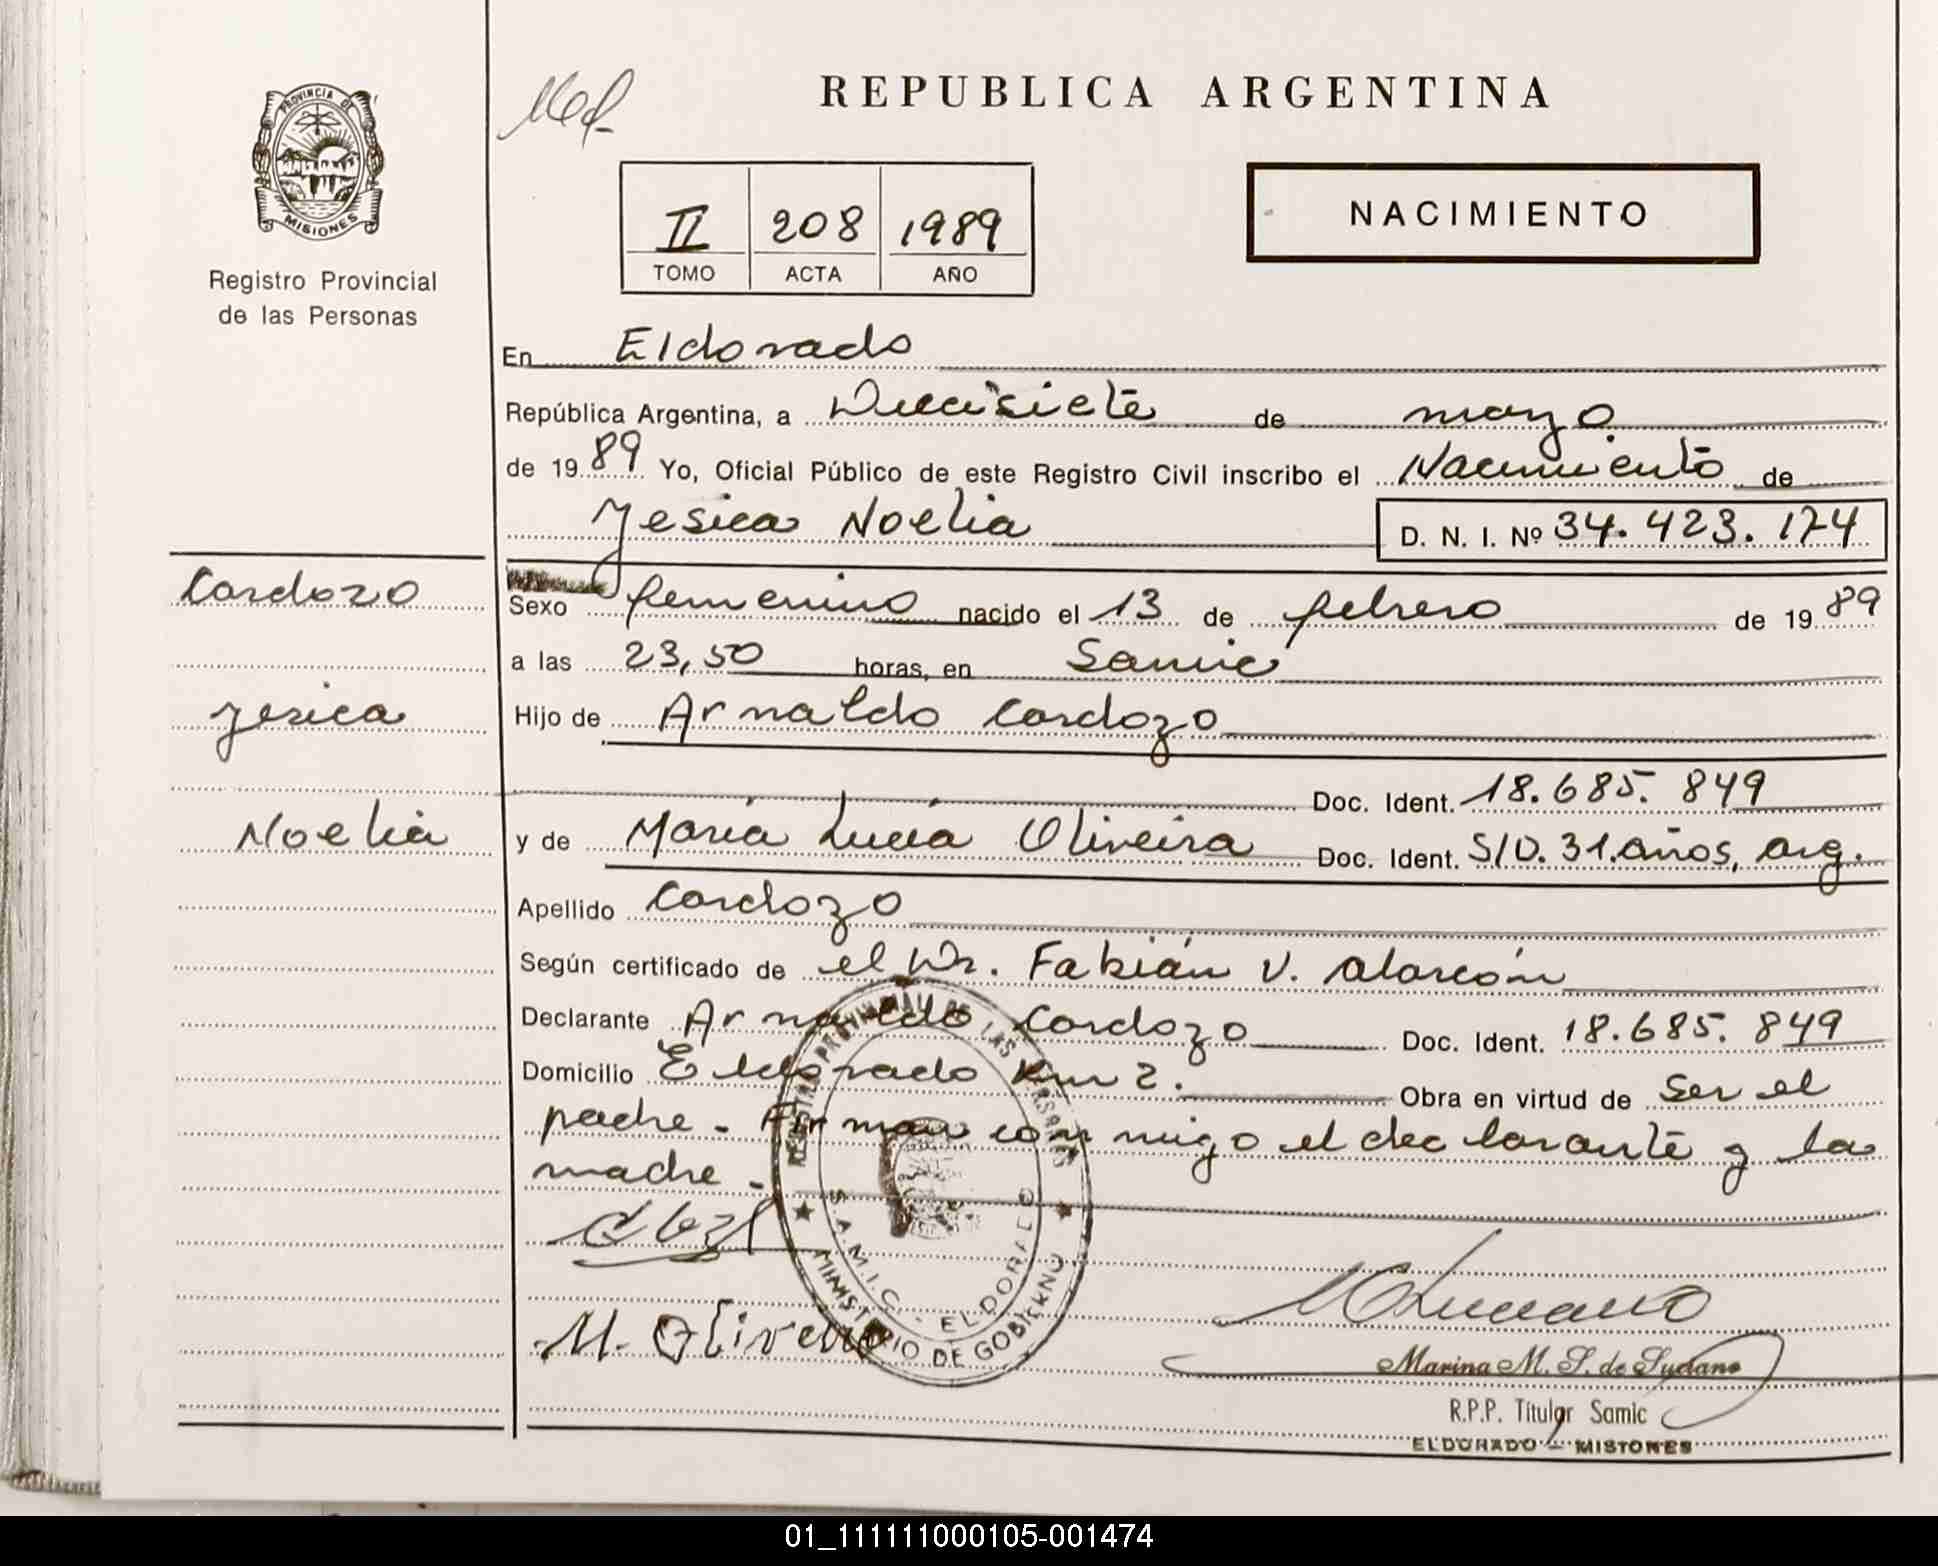 PROVINCIA DE
MISIONES
Registro Provincial
de las Personas
REPUBLICA ARGENTINA
II 208 1989
TOMO ACTA AÑO
NACIMIENTO
En Eldorado
República Argentina, a Diecisiete de mayo
de 1989 Yo, Oficial Público de este Registro Civil inscribo el Nacimiento de
Yesica Noelia D. N. I. Nº 34.423.174
Cardozo
Yesica
Noelia
Sexo femenino nacido el 13 de febrero de 1989
a las 23,50 horas, en Samic
Hijo de Arnaldo Cardozo
Doc. Ident. 18.685.849
y de María Lucía Oliveira Doc. Ident. S/D. 31.años, arg.
Apellido Cardozo
Según certificado de el Dr. Fabián V. Alarcón
Declarante Arnaldo Cardozo Doc. Ident. 18.685.849
Domicilio Eldorado Km 2. Obra en virtud de ser el
padre - Firman conmigo el declarante y la
madre -
REGISTRO PROVINCIAL DE LAS PERSONAS
S.A.M.I.C. - ELDORADO
MINISTERIO DE GOBIERNO
M. Oliveira
Marina M. S. de Luciano
R.P.P. Titular Samic
ELDORADO - MISIONES
01_111111000105-001474